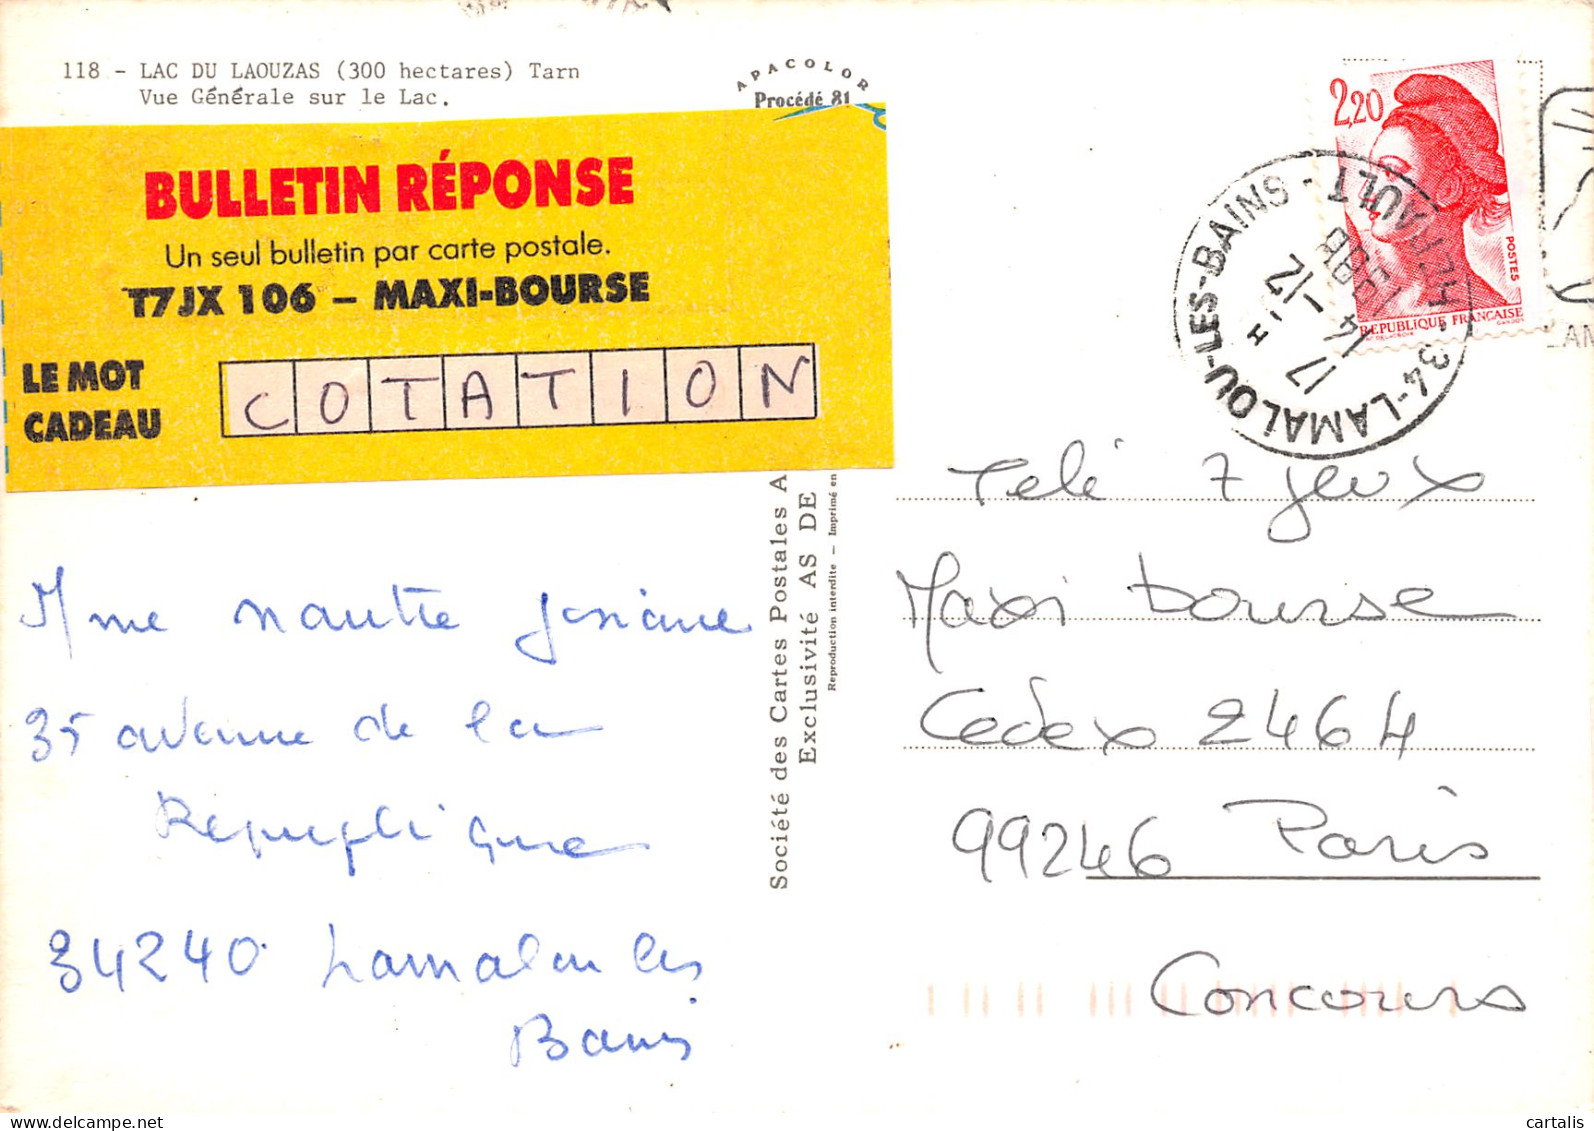 118 - LAC DU LAOUZAS (300 hectares) Tarn
Vue Générale sur le Lac.
APACOLOR
Procédé 81
BULLETIN RÉPONSE
Un seul bulletin par carte postale.
T7JX 106 - MAXI-BOURSE
LE MOT
CADEAU
COTATION
Mme Nautre Josiane
35 avenue de la
Republique
34240 Lamalou les
Bains
Société des Cartes Postales A
Exclusivité AS DE
Reproduction interdite - Imprimé en
2,20
POSTES
REPUBLIQUE FRANÇAISE
34-LAMALOU-LES-BAINS - HERAULT
17 H
14 -12
1988
Télé 7 jeux
Maxi bourse
Cedex 2464
99246 Paris
Concours